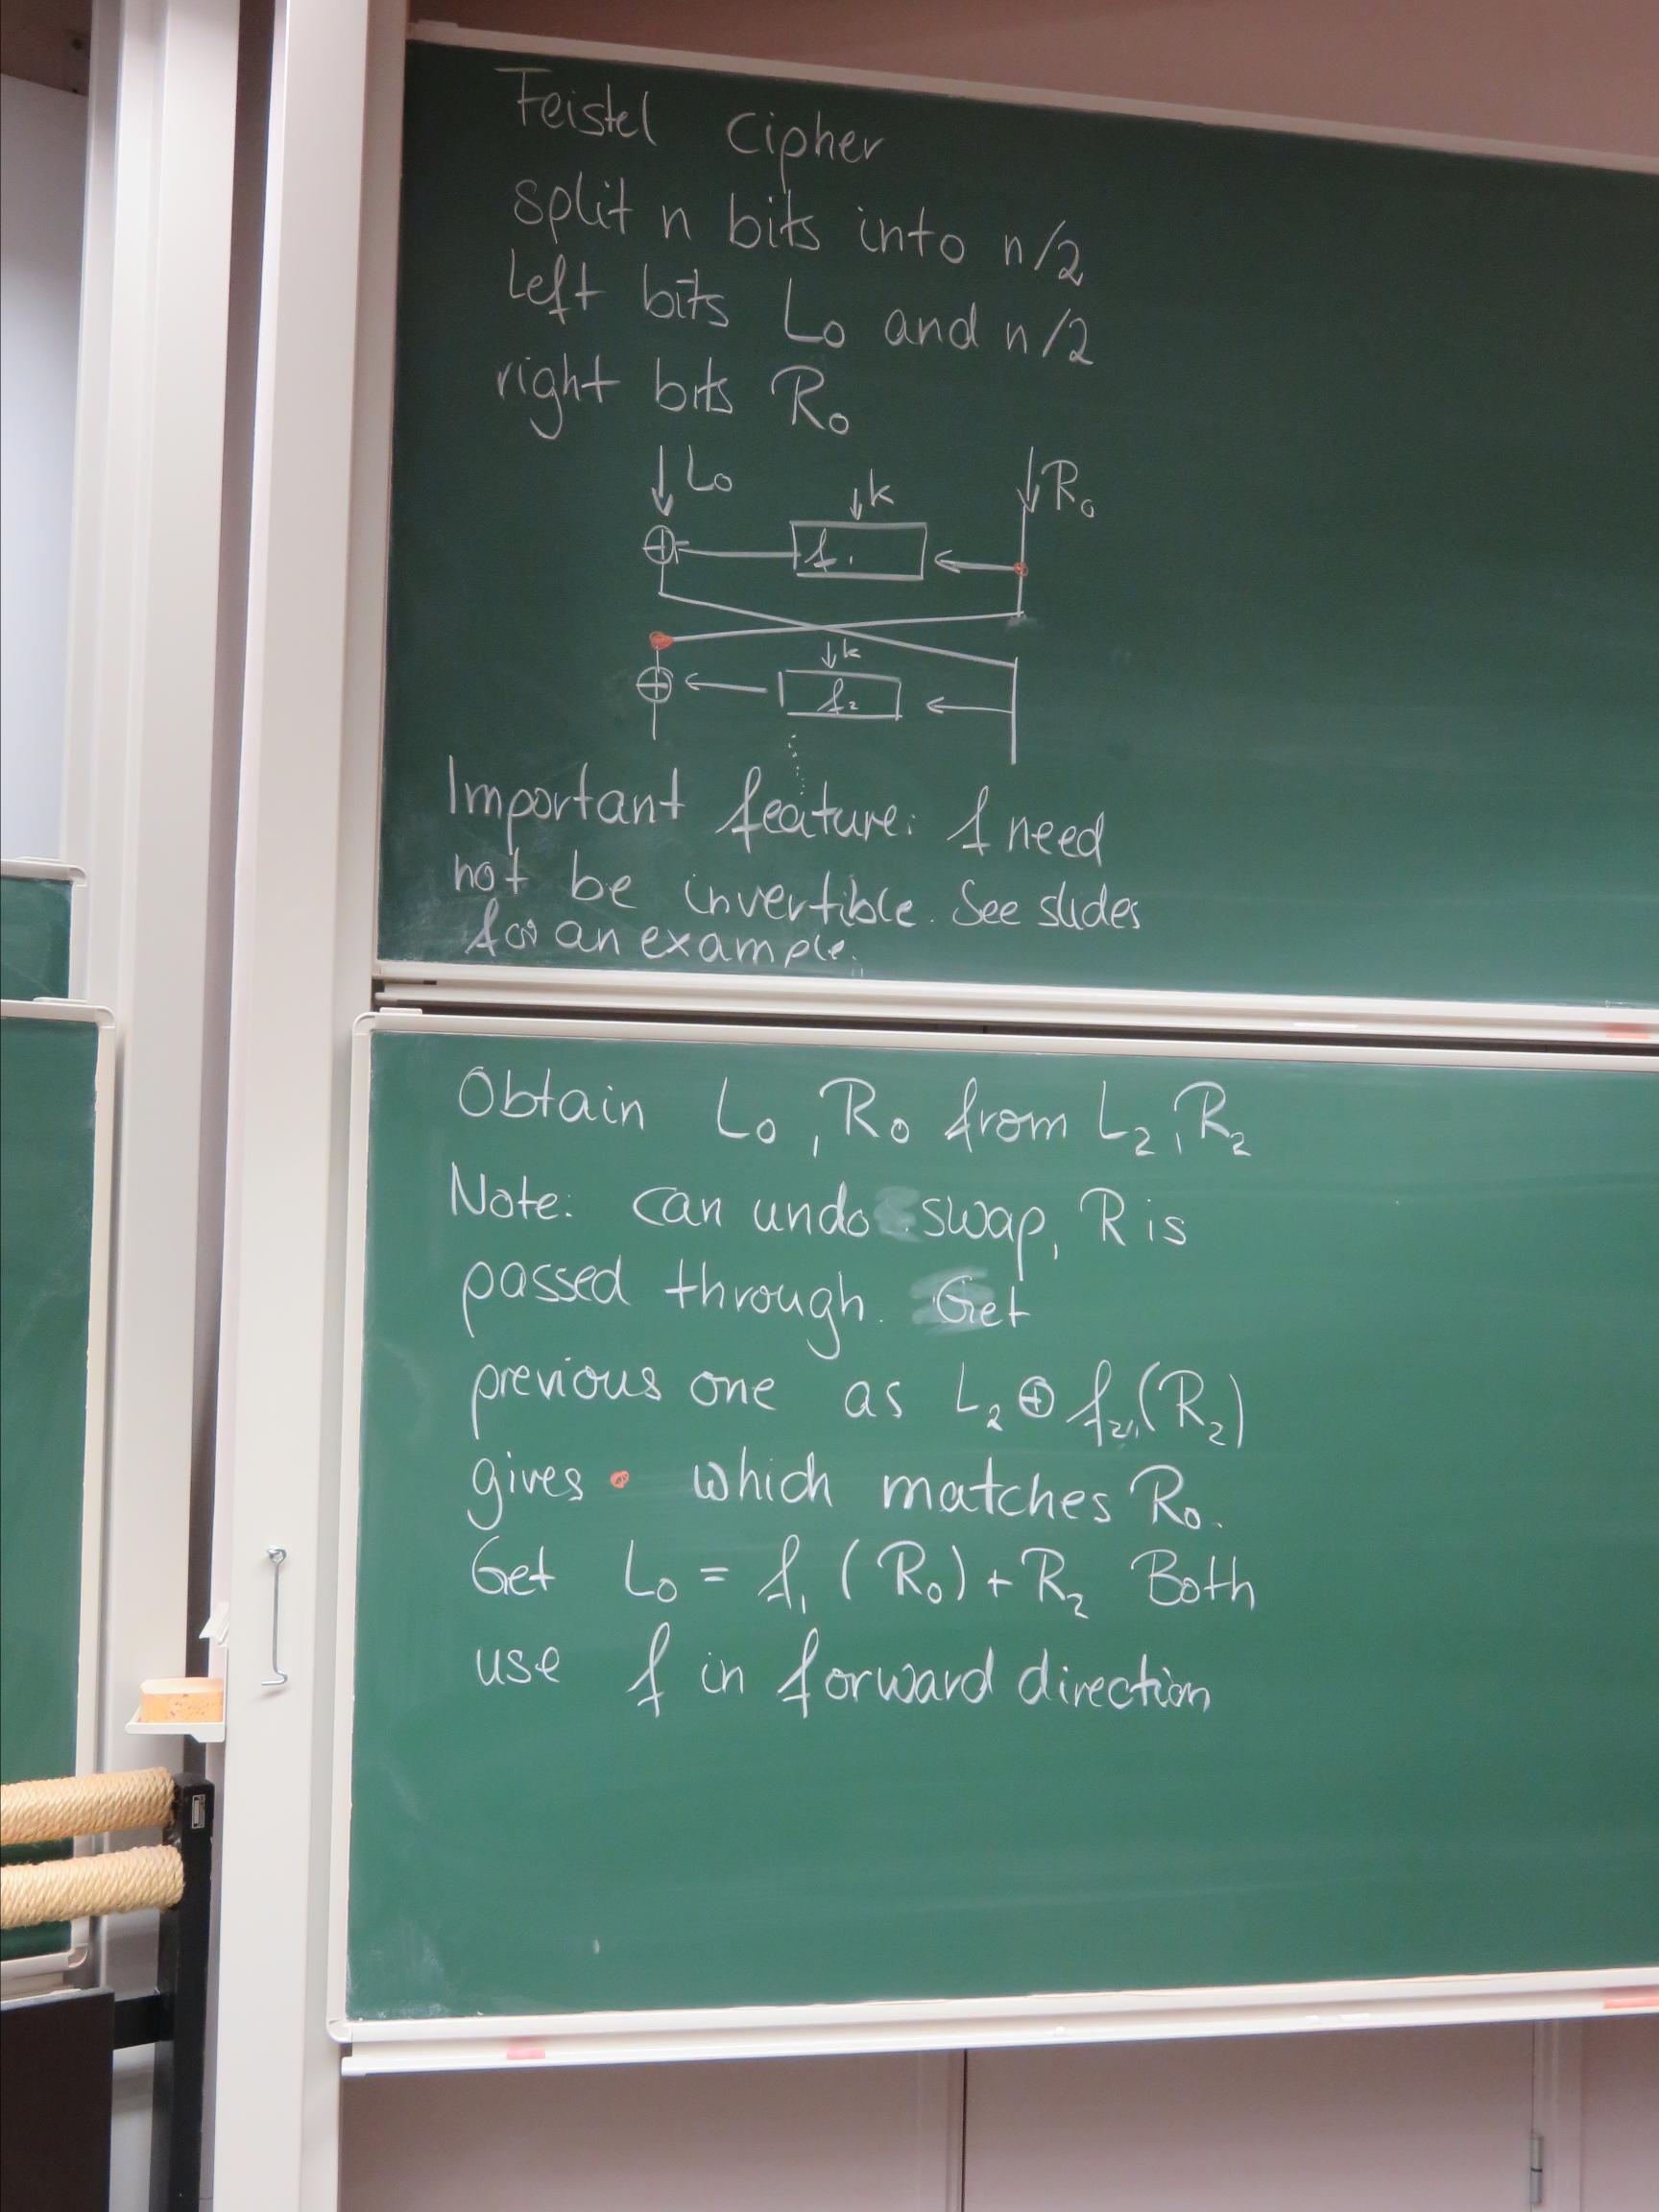 Feistel Cipher
split n bits into n/2
left bits L₀ and n/2
right bits R₀
↓ L₀ ↓ k ↓ R₀
⊕ f₁
↓ k
⊕ f₂
Important feature: f need
not be invertible. See slides
for an example.
Obtain L₀, R₀ from L₂, R₂
Note: can undo swap, R is
passed through. Get
previous one as L₂ ⊕ f₂(R₂)
gives • which matches R₀.
Get L₀ = f₁ (R₀) + R₂ Both
use f in forward direction